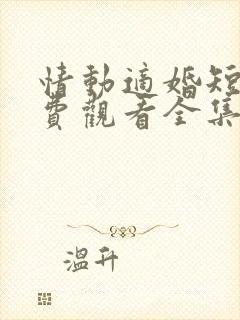 情動適婚短
費觀看全集
溫升